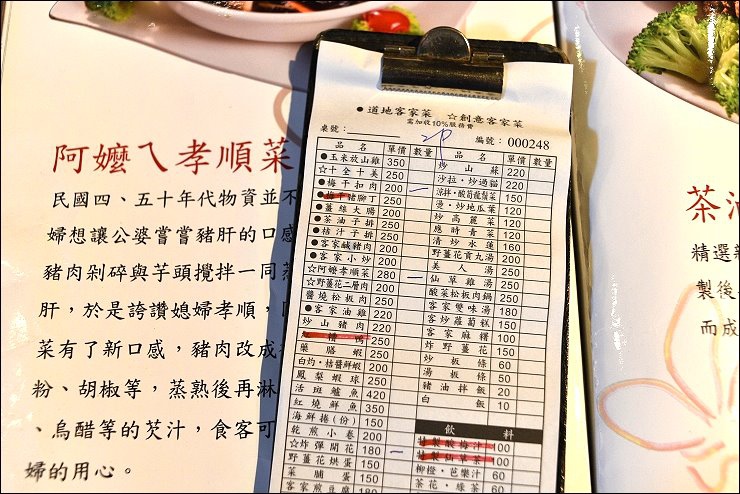 阿嬤ㄟ孝順菜
民國四、五十年代物資並不
婦想讓公婆嘗嘗豬肝的口感
豬肉剁碎與芋頭攪拌一同蒸
肝，於是誇讚媳婦孝順，
菜有了新口感，豬肉改成
粉、胡椒等，蒸熟後再淋
、烏醋等的芡汁，食客可
婦的用心。
●道地客家菜 ☆創意客家菜
需加收10%服務費
桌號： 編號：000248
品名 單價 數量
●玉米放山雞 350
☆十全十美 250
●梅干扣肉 200
●梅干豬腳丁 250
●薑絲大腸 200
●茶油子排 250
●桔汁子排 250
●客家鹹豬肉 200
●客家小炒 200
☆阿嬤孝順菜 280
☆野薑花二層肉 200
醬燒松板肉 250
●客家油雞 220
炒山豬肉 220
糟鴨 250
藥膳蝦 250
白灼·桔醬鮮蝦 200
鳳梨蝦球 250
活斑鱸魚 420
紅燒鮮魚 350
海鮮捲(份) 150
乾煎小卷 200
☆炸彈開花 180
野薑花烘蛋 150
菜脯蛋 150
客家煎豆腐 180
品名 單價 數量
炒山蘇 220
沙拉·炒過貓 220
涼拌·酸筍龍鬚菜 150
燙·炒地瓜葉 120
炒高麗菜 120
應時青菜 120
清炒水蓮 160
野薑花貢丸湯 200
美人湯 250
仙草雞湯 250
酸菜松板肉鍋 250
客家雙味湯 180
客炒蘿蔔糕 150
客家麻糬 100
炸野薑花 150
炒粄條 60
湯粄條 50
豬油拌飯 20
白飯 10
飲料
特製酸梅汁 100
特製仙草茶 100
柳橙·芭樂汁 60
茶花·綠茶 60
茶油
精選新
製後
而成